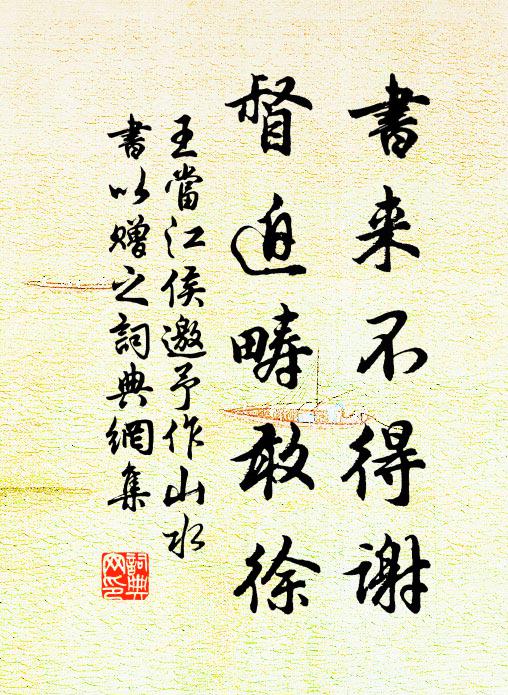 書来不得謝
督迫疇敢徐
王當江侯邀予作山水
書以贈之詞典網集
詞典
网印